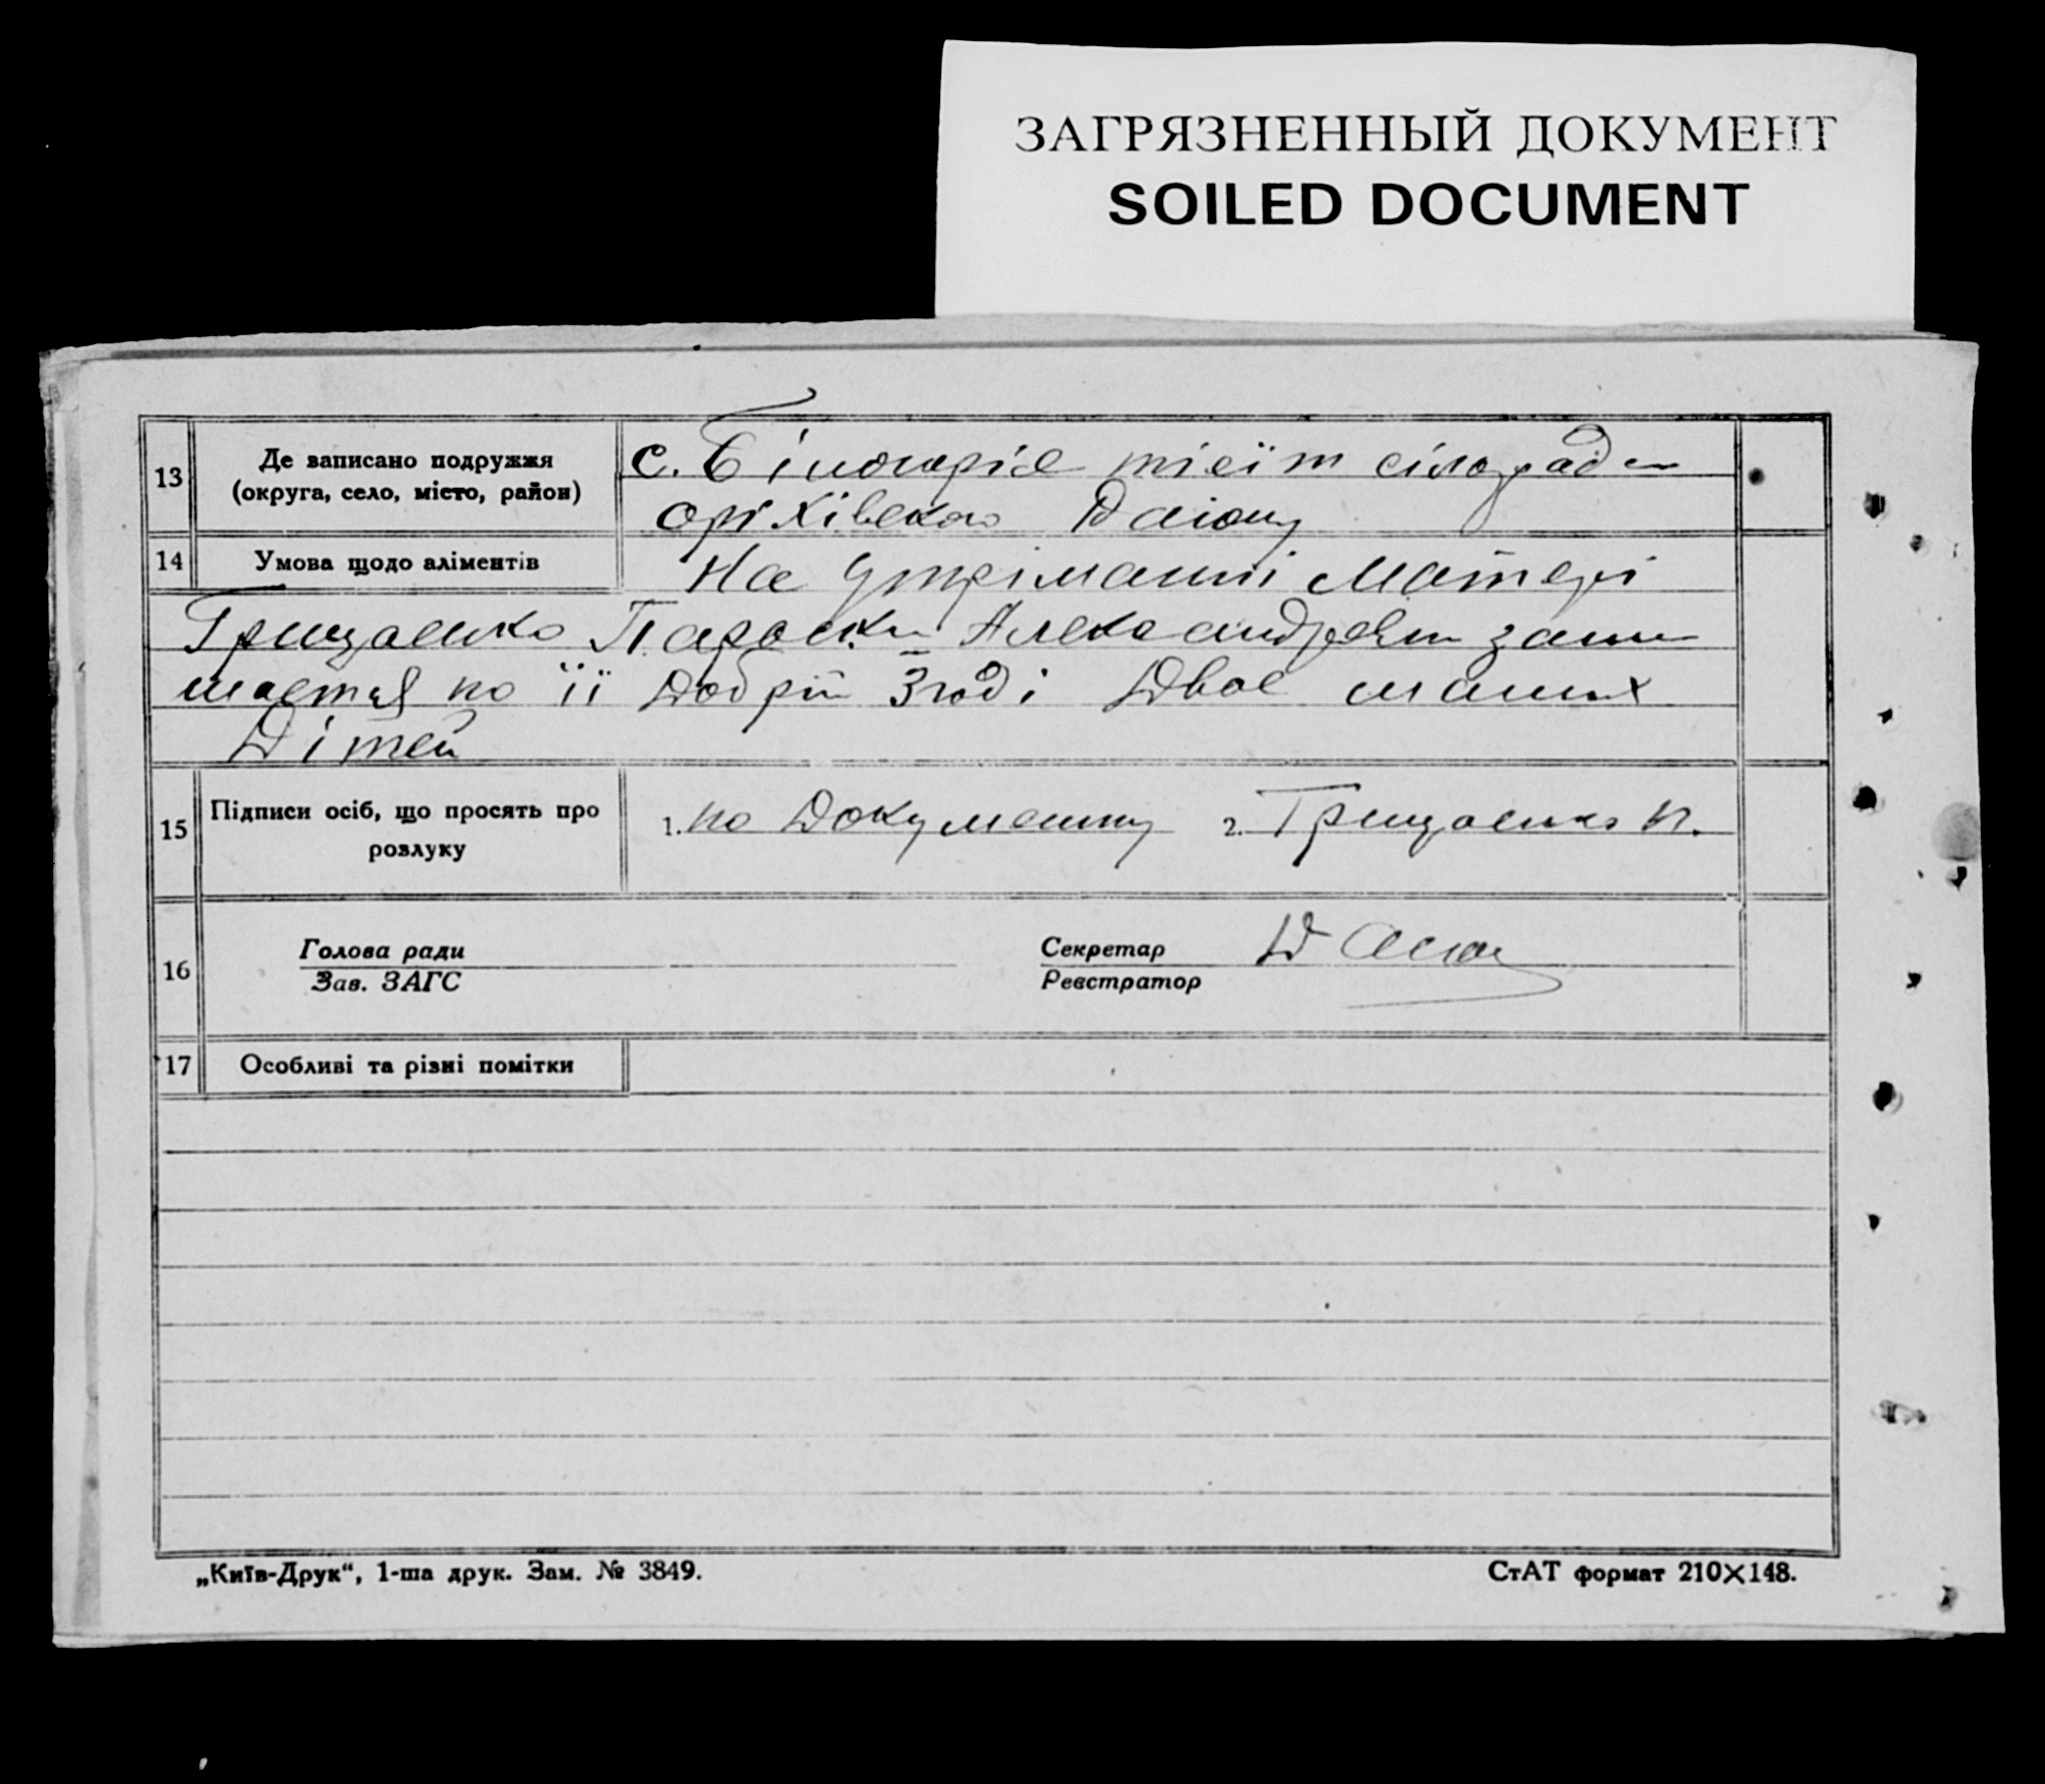 ЗАГРЯЗНЕННЫЙ ДОКУМЕНТ
SOILED DOCUMENT
13 Де записано подружжя (округа, село, місто, район)
с. Білогоріє тієїт сілоради
оріхівского Району
14 Умова щодо аліментів
На утріманні Матері
Грицаенко Параски Александревни зали
шается по її Добрій Згоді Двое малих
Дітей
15 Підписи осіб, що просять про розлуку
1. по Документу 2. Грицаенко П.
16 Голова ради
Зав. ЗАГС
Секретар
Реєстратор
17 Особливі та різні помітки
„Київ-Друк“, 1-ша друк. Зам. № 3849.
СтАТ формат 210×148.